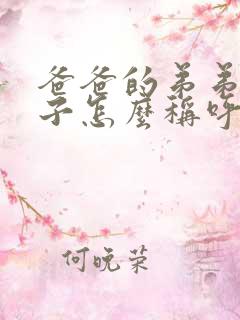 爸爸的弟弟
子怎麼稱呼
何晚荣